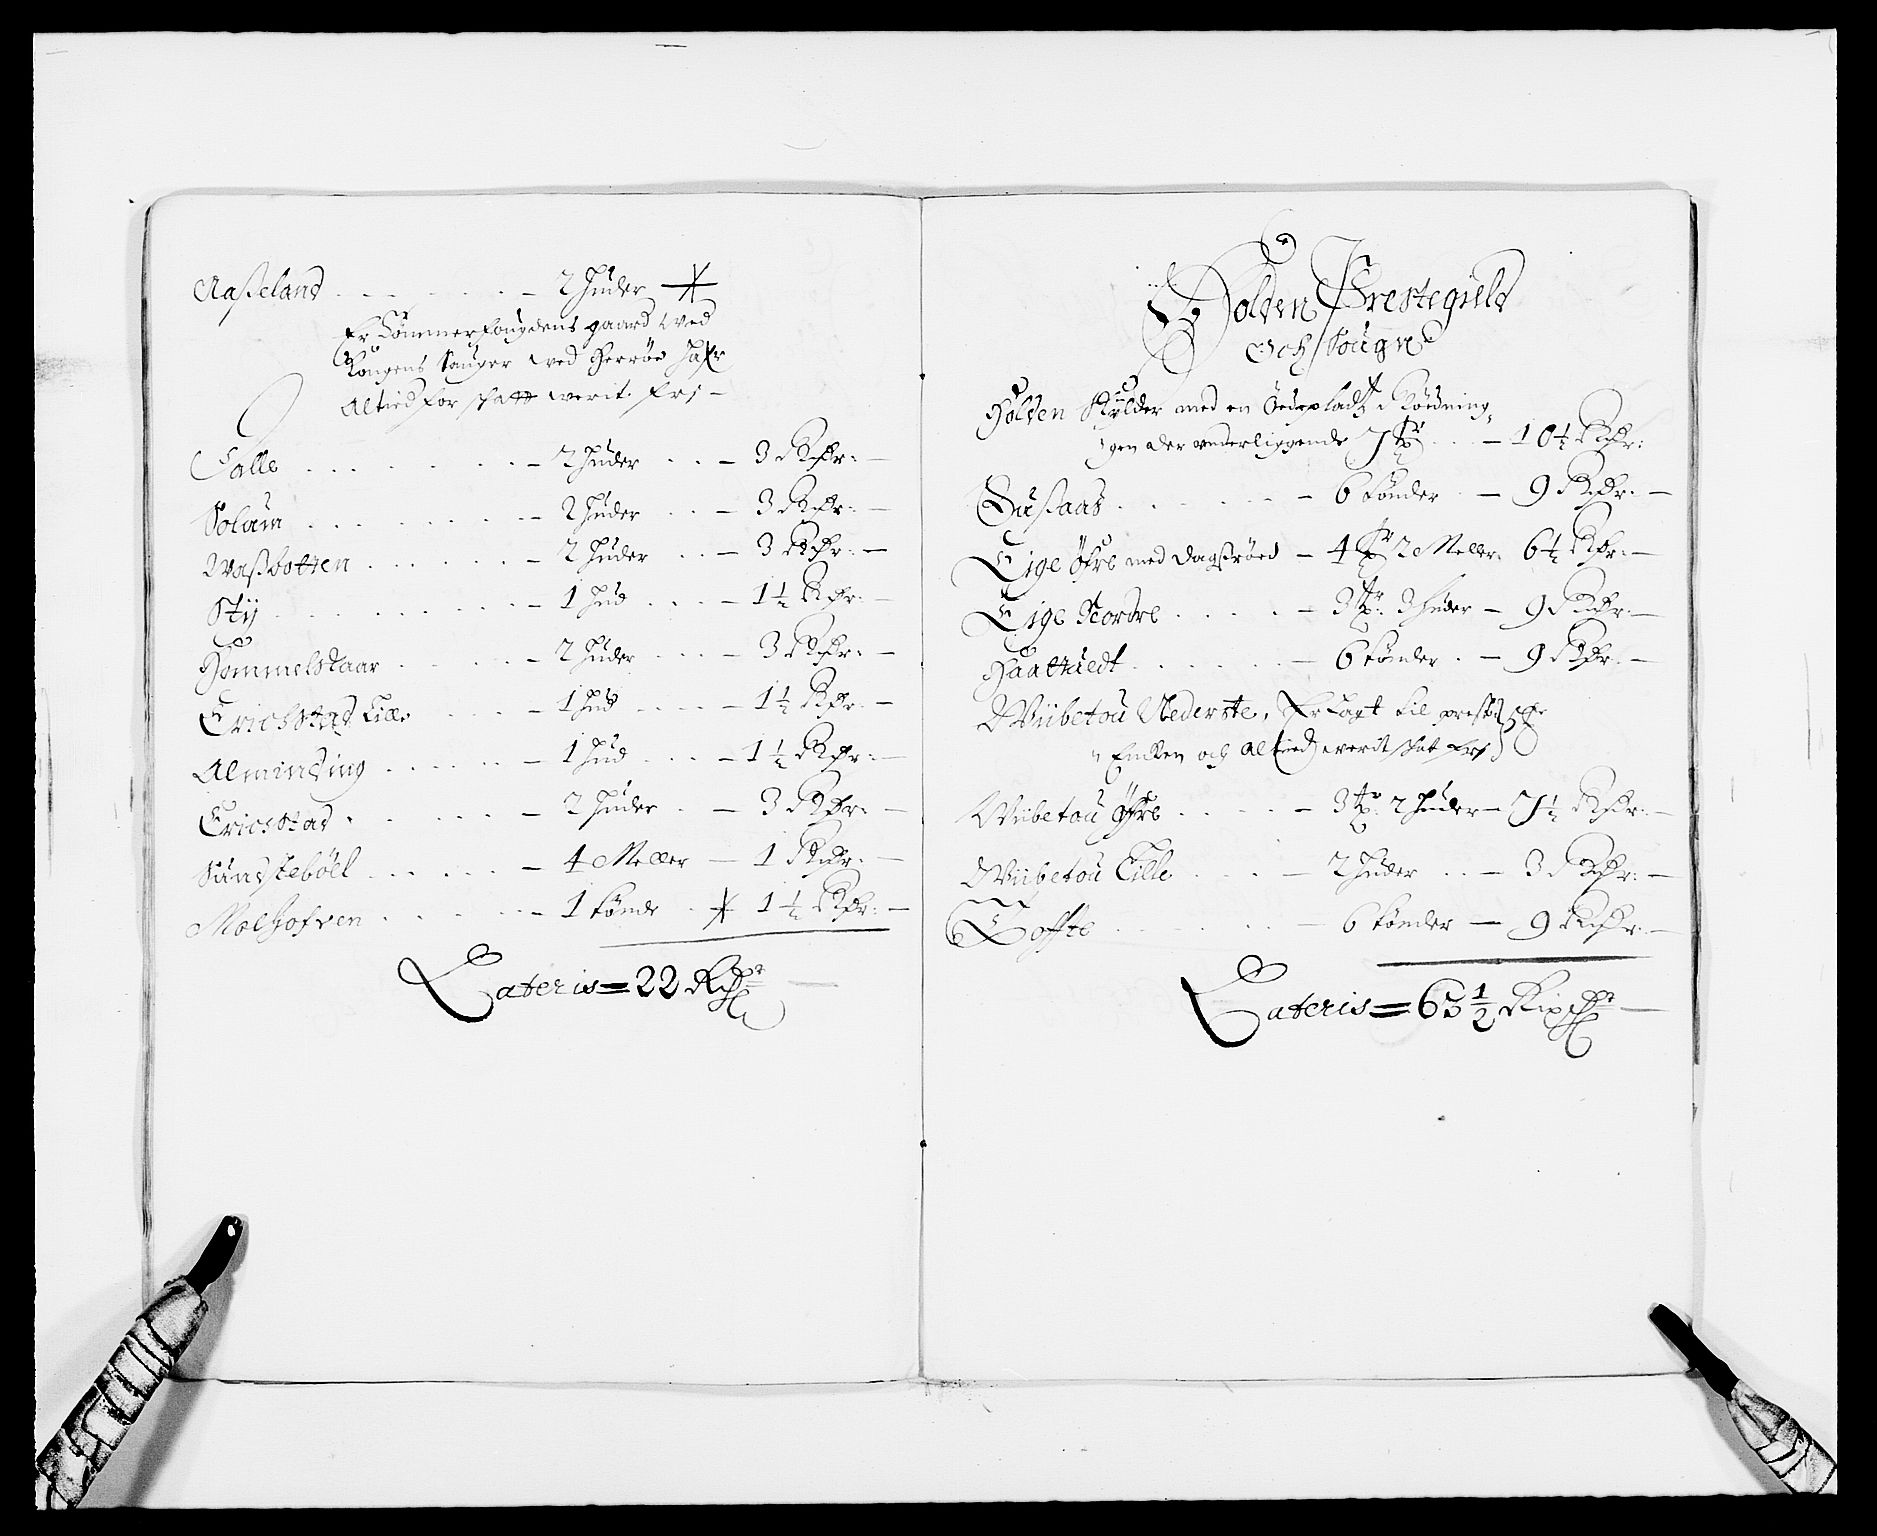 Aaßeland . . . . . . – 2 Huder
Er Tømmerfougdens gaard wed
Kongens Sauger wed Herröe hafr
Altied for skatt werit fri –
Falle . . . . . . . – 2 Huder . . – 3 Rdr: –
Solum . . . . . . . – 2 Huder . . – 3 Rdr: –
Waßbotten . . . . . . – 2 Huder . . – 3 Rdr: –
Stij . . . . . . . – 1 Hud . . . – 1½ Rdr: –
Hommelstaar . . . . . – 2 Huder . . . – 3 Rdr: –
Erichstad Lille . . . – 1 Hud . . . . – 1½ Rdr: –
Alminding . . . . . . – 1 Hud . . . – 1½ Rdr: –
Erichstad . . . . . . – 2 Huder . – 3 Rdr: –
Sundstebøel . . . . . . – 4 Meller – 1 Rdr: –
Molhofven . . . . . . – 1 tønde . 1½ Rdr: –
Lateris = 22 Rdr –
Holden Prestegield
Och Sougn
Holden Skylder med en Ödeplads Rødning,
gen der underliggende 7 . . – 10½ Rdr:
Dusaas . . . . . . – 6 tønder . – 9 Rdr: –
Eige Øfre med Dagsrøed – 4 2 Meller 6½ Rdr: –
Eige Nordre . . . . . – 3 3 Huder – 9 Rdr: –
Haatuedt . . . . . . – 6 tønder . – 9 Rdr: –
Wiibetou Nederste, Er lagt til preste
Encken och altied werit skat frj
Wiibetou Øfre . . . . – 3 2 Huder – 7½ Rdr: –
Wiibetou Lille . . . . – 2 Huder . . – 3 Rdr: –
Tofte . . . . . . – 6 tønder – 9 Rdr: –
Lateris = 63½ –